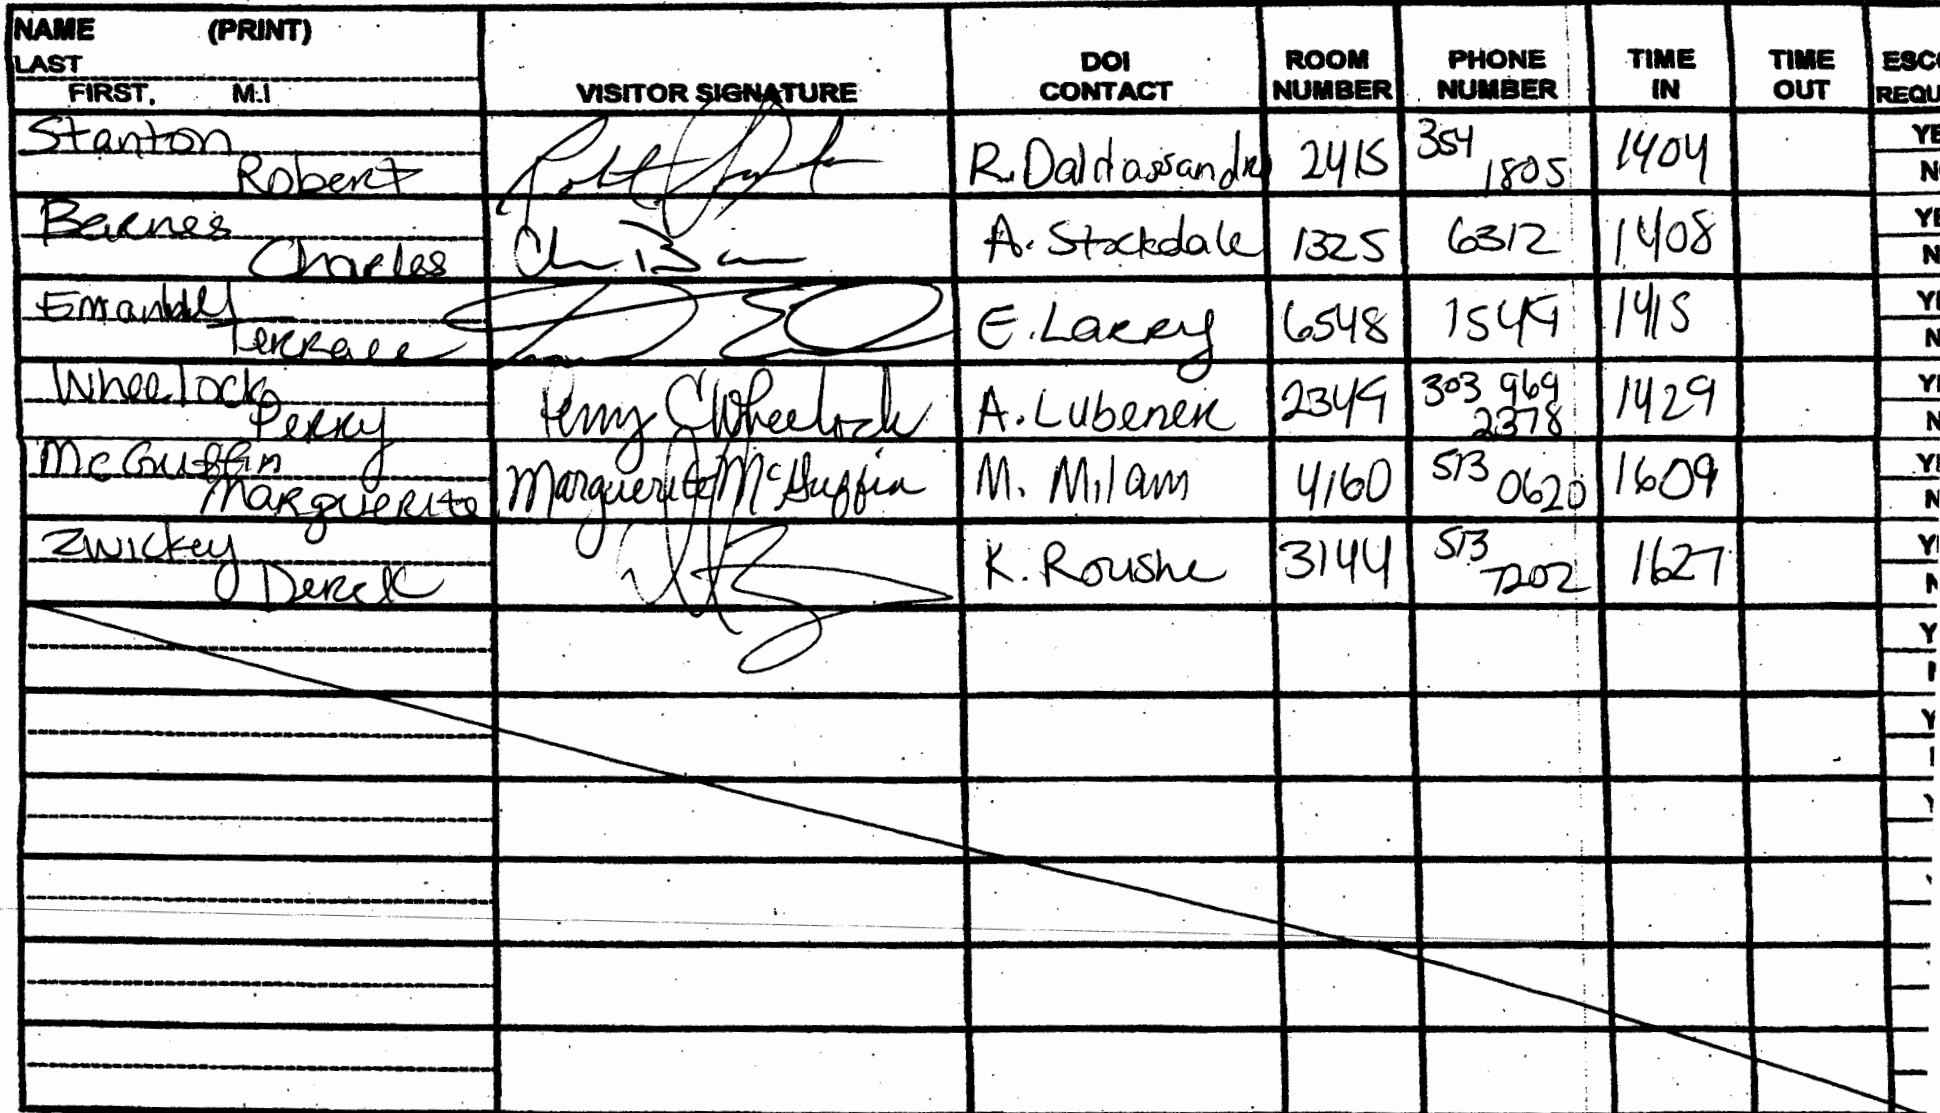 NAME (PRINT)
LAST
FIRST, M.I
VISITOR SIGNATURE
DOI CONTACT
ROOM NUMBER
PHONE NUMBER
TIME IN
TIME OUT
Stanton
Robert
R. 2415 354 1805 1404
Barnes
Charles
A. Stockdale 1325 6312 1408
Terrace
E. Larry 6548 1549 1415
Wheelock
Perry
Perry C Wheelock A. Lubener 2349 303 969 2378 1429
McGuffin
Marguerite
Marguerite McGuffin M. Milam 4160 513 0620 1609
Zwickey
Derek
K. Roushe 3144 513 7202 1627